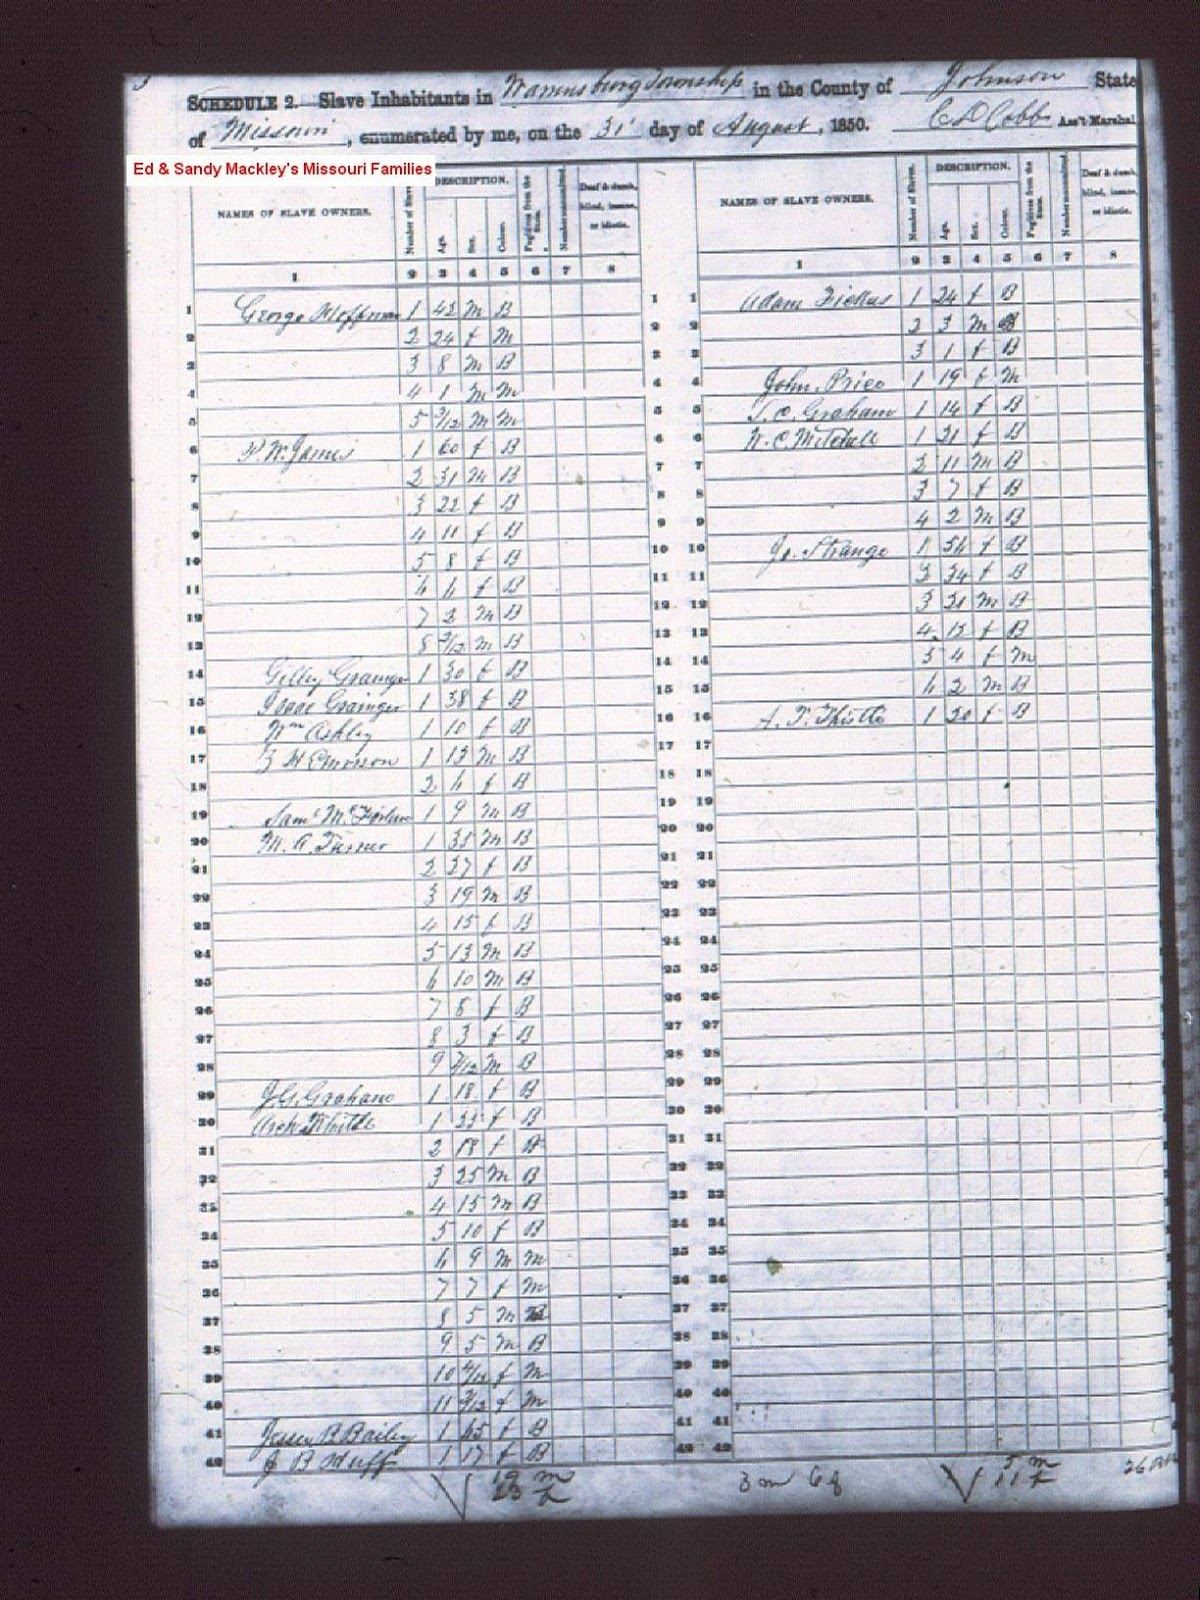 SCHEDULE 2. Slave Inhabitants in Warrensburg Township in the County of Johnson State
of Missouri, enumerated by me, on the 31 day of August, 1850. C D Cobb Ass't Marshal
Ed & Sandy Mackley's Missouri Families
NAMES OF SLAVE OWNERS. Number of Slaves. DESCRIPTION. Age. Sex. Colour. Fugitives from the State. Number manumitted. Deaf & dumb, blind, insane, or idiotic.
1 2 3 4 5 6 7 8
1 George Hoffman 1 42 m B
2 2 24 f m
3 3 8 m B
4 4 1 m m
5 5 3/12 m m
6 P. W. James 1 60 f B
7 2 31 m B
8 3 22 f B
9 4 11 f B
10 5 8 f B
11 6 6 f B
12 7 2 m B
13 8 m B
14 Gilley Grainger 1 30 f B
15 Isaac Grainger 1 38 f B
16 Wm Ashley 1 10 f B
17 Z H Emerson 1 13 m B
18 2 6 f B
19 Saml 1 9 m B
20 M. A. Turner 1 35 m B
21 2 27 f B
22 3 19 m B
23 4 15 f B
24 5 13 m B
25 6 10 m B
26 7 f B
27 8 3 f B
28 9 m B
29 J. G. Graham 1 18 f B
30 Arch Thistle 1 f B
31 2 18 f B
32 3 25 m B
33 4 15 m B
34 5 10 f B
35 6 9 m m
36 7 7 f m
37 8 5 m
38 9 5 m B
39 10 4/12 f m
40 11 f m
41 Jesse B Bailey 1 65 f B
42 J B Huff 1 17 f B
19 m
23 f
NAMES OF SLAVE OWNERS. Number of Slaves. DESCRIPTION. Age. Sex. Colour. Fugitives from the State. Number manumitted. Deaf & dumb, blind, insane, or idiotic.
1 2 3 4 5 6 7 8
1 Adam Fickas 1 24 f B
2 2 3 m B
3 3 1 f B
4 John Price 1 19 f m
5 Graham 1 14 f B
6 W. C. Mitchell 1 21 f B
7 2 11 m B
8 3 7 f B
9 4 2 m B
10 Strange 1 f B
11 2 34 f B
12 3 21 m B
13 4 15 f B
14 5 4 f m
15 6 2 m B
16 A. Thistle 1 30 f B
17
18
19
20
21
22
23
24
25
26
27
28
29
30
31
32
33
34
35
36
37
38
39
40
41
42
3 m 6 f
5 m
11 f